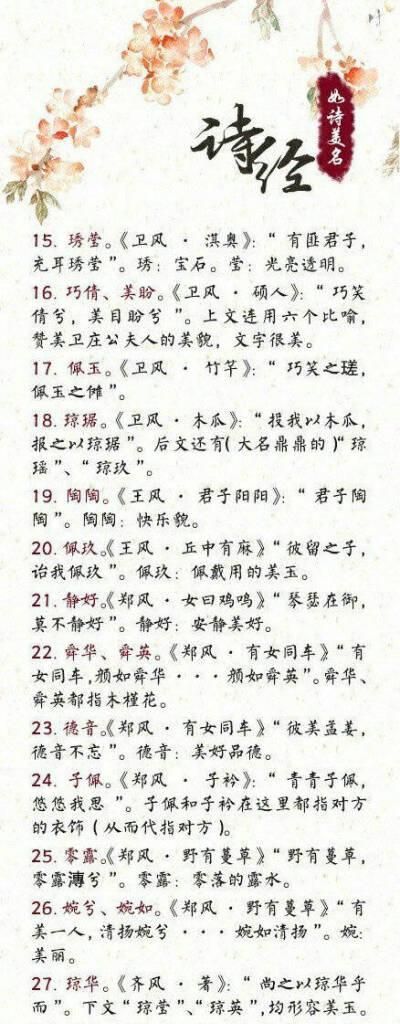 诗经
如诗美名
15. 琇莹。《卫风 · 淇奥》：“ 有匪君子，
充耳琇莹 ”。琇：宝石。莹：光亮透明。
16. 巧倩、美盼。《卫风 · 硕人》：“ 巧笑
倩兮，美目盼兮 ”。上文连用六个比喻，
赞美卫庄公夫人的美貌，文字很美。
17. 佩玉。《卫风 · 竹竿》：“ 巧笑之瑳，
佩玉之傩 ”。
18. 琼琚。《卫风 · 木瓜》：“投我以木瓜，
报之以琼琚 ”。后文还有（ 大名鼎鼎的 ）“ 琼
瑶 ”、“ 琼玖 ”。
19. 陶陶。《王风 · 君子阳阳》：“ 君子陶
陶 ”。陶陶：快乐貌。
20. 佩玖。《王风 · 丘中有麻》“ 彼留之子，
诒我佩玖 ”。佩玖：佩戴用的美玉。
21. 静好。《郑风 · 女曰鸡鸣》“ 琴瑟在御，
莫不静好 ”。静好：安静美好。
22. 舜华、舜英。《郑风 · 有女同车》“ 有
女同车，颜如舜华 · · · 颜如舜英 ”。舜华、
舜英都指木槿花。
23. 德音。《郑风 · 有女同车》“ 彼美孟姜，
德音不忘 ”。德音：美好品德。
24. 子佩。《郑风 · 子衿》：“ 青青子佩，
悠悠我思 ”。子佩和子衿在这里都指对方
的衣饰（ 从而代指对方 ）。
25. 零露。《郑风 · 野有蔓草》“ 野有蔓草，
零露漙兮 ”。零露：零落的露水。
26. 婉兮、婉如。《郑风 · 野有蔓草》“ 有
美一人，清扬婉兮 · · · 婉如清扬 ”。婉：
美丽。
27. 琼华。《齐风 · 著》：“ 尚之以琼华乎
而 ”。下文“ 琼莹 ”、“ 琼英 ”，均形容美玉。